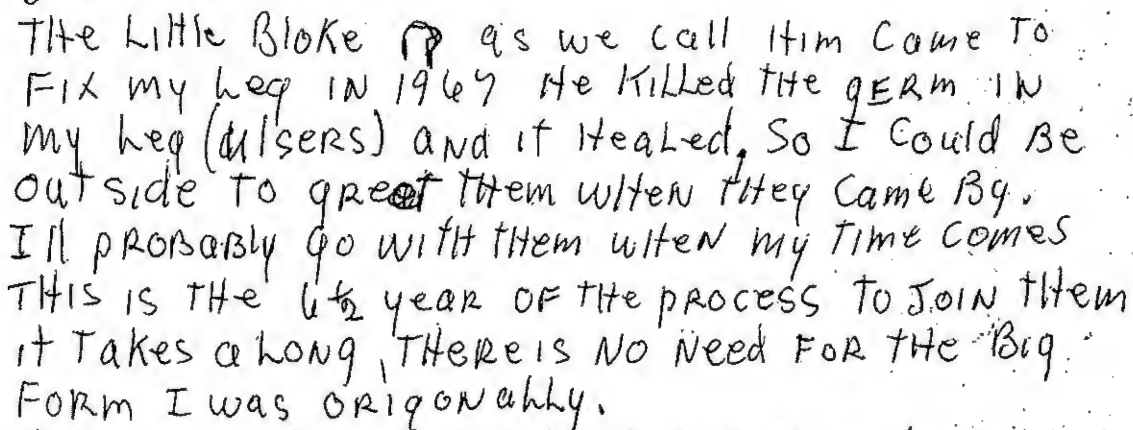 THe Little Bloke as we call Him Came To
Fix my Leg IN 1967 He KiLLed THe gERm IN
my Leg (Ulsers) aNd iT HeaLed, So I Could Be
OuT side To gReet THem wHeN THey Came By.
I'll pRoBaBly go wiTH THem wHeN my Time Comes
THis is THe 6½ yeaR oF THe pRocess To JoiN THem
iT Takes a LoNg, THeRe is No Need FoR THe Big
FoRm I was oRigoNaLLy.